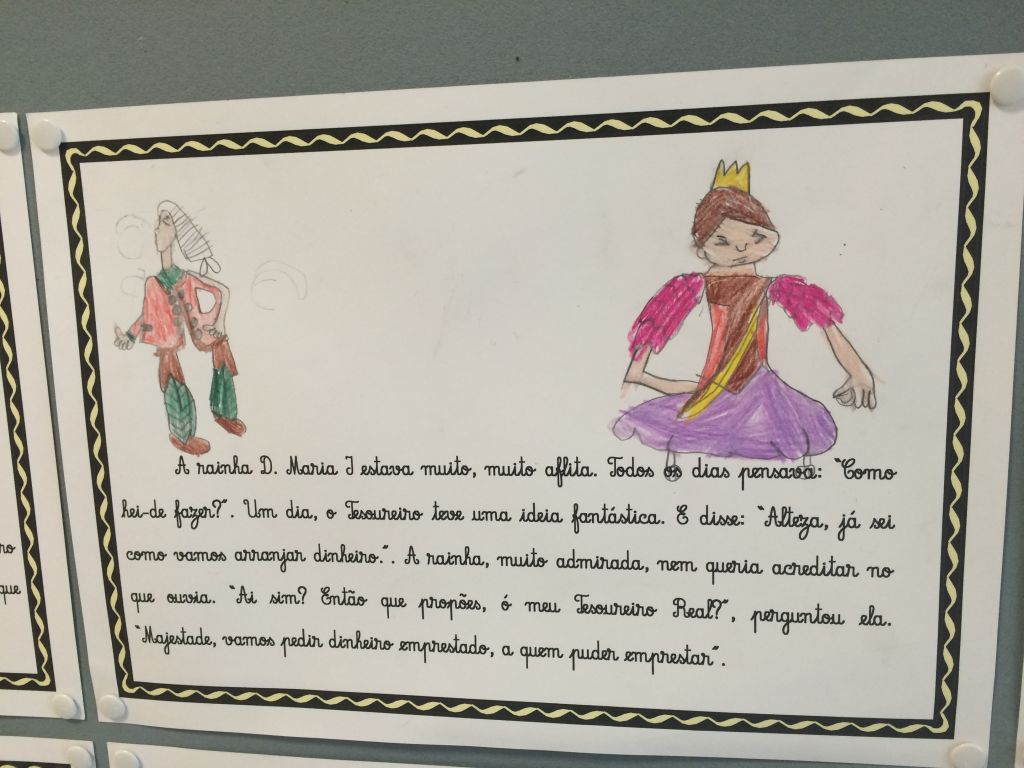 A rainha D. Maria I estava muito, muito aflita. Todos os dias pensava: "Como
hei-de fazer?". Um dia, o Tesoureiro teve uma ideia fantástica. E disse: "Alteza, já sei
como vamos arranjar dinheiro.". A rainha, muito admirada, nem queria acreditar no
que ouvia. "Ai sim? Então que propões, ó meu Tesoureiro Real?", perguntou ela.
"Majestade, vamos pedir dinheiro emprestado, a quem puder emprestar".
que